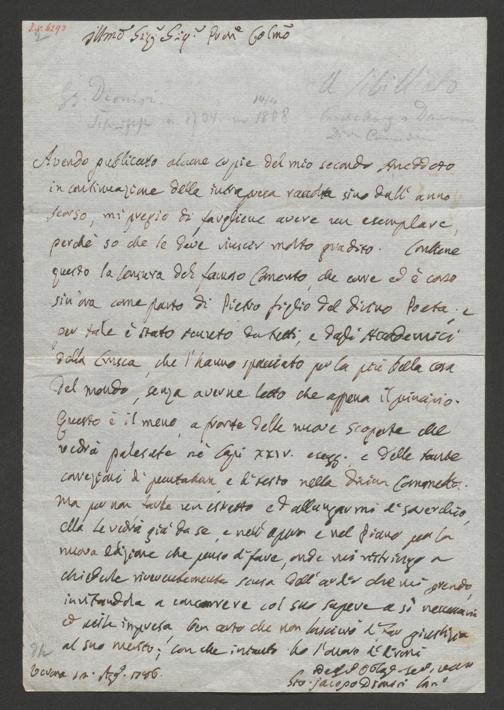 Illmo Sigr Sigr Pron Colmo
Gg Dionisi
Avendo publicato alcune copie del mio secondo Aneddoto
in continuazione della intrapresa raccolta sino dall' anno
scorso, mi pregio di farglielene avere un esemplare,
perchè so che le deve riuscir molto gradito. Contiene
questo la Censura del famoso Comento, che corre ed è corso
sin' ora come parto di Pietro figlio del divino Poeta. e
per tale è stato tenuto da tutti, e dagli Accademici
della Crusca, che l'hanno spacciato per la più bella cosa
del mondo, senza averne letto che appena il principio.
Questo è il meno, a fronte delle nuove scoperte che
vedrà palesate ne' Capi XXIV. esso, e delle tante
correzioni di puntatura, e di testo nella Divina Commedia.
Ma per non farle un estratto e d'allungarmi di soverchio,
ella le vedrà già da se, e nell' opera e nel Piano per la
nuova edizione che penso di fare, onde mi ristringo a
chiederle riverentemente scusa dell' ardir che mi prendo,
invitandola a concorrere col suo sapere a sì necessaria
ed utile impresa, ben certo che non lascierò di far giustizia
al suo merito; con che intanto ho l'onore di dirmi
Verona 12. Agto 1786.
Gio. Jacopo Dionisi Canco